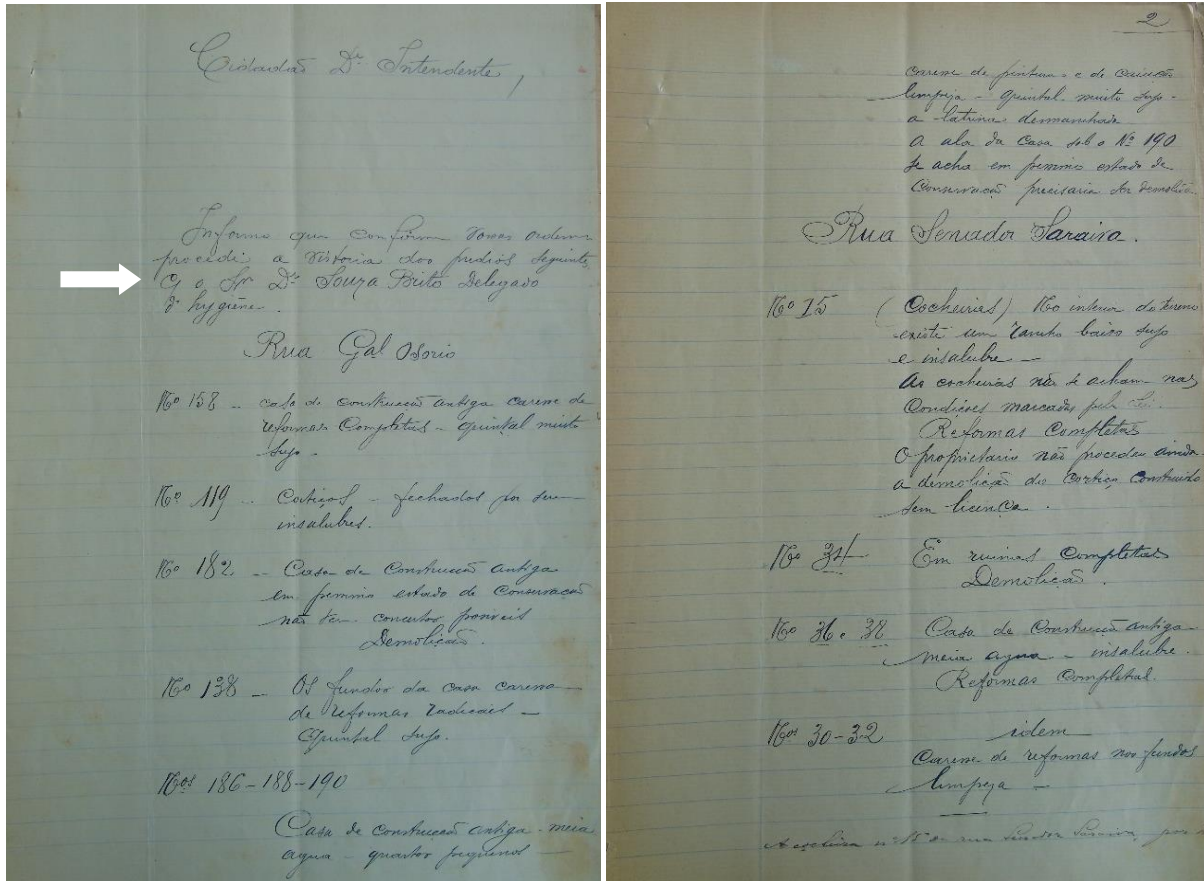 Cidadão Dr. Intendente,
Informo que conforme vossas ordens
procedi a vistoria dos predios seguintes
o Snr Dr Souza Brito Delegado
d'hygiene.
Rua Gal Osorio
No 158 .. casa de construcção antiga carece de
reformas completas - quintal muito
sujo -
No 119 .. Cortiços - fechados por serem
insalubres.
No 182 - Casa de construcção antiga
em pessimo estado de conservação
não tem concertos possiveis
Demolição.
No 138 - Os fundos da casa carecem
de reformas radicaes -
Quintal sujo.
Nos 186-188-190
Casa de construcção antiga - meia
agua - quartos pequenos -
2
carece de pintura e de caiação
limpeza - quintal muito sujo -
a latrina desmanchada
A ala da casa sob o No 190
se acha em pessimo estado de
conservação precisaria ser demolida
Rua Senador Saraiva.
No 15 (Cocheiras) No interior do terreno
existe um rancho baixo sujo
e insalubre -
As cocheiras não se acham nas
condições marcadas pela Lei.
Reformas completas
O proprietario não procedeu ainda
a demolição do cortiço construido
sem licença.
No 34 Em ruinas completas
Demolição.
No 36 e 38 Casa de construcção antiga -
meia agua - insalubre.
Reformas completas.
Nos 30-32 idem
Carece de reformas nos fundos
limpeza -
A cocheira nº 15 da rua Senador Saraiva, por